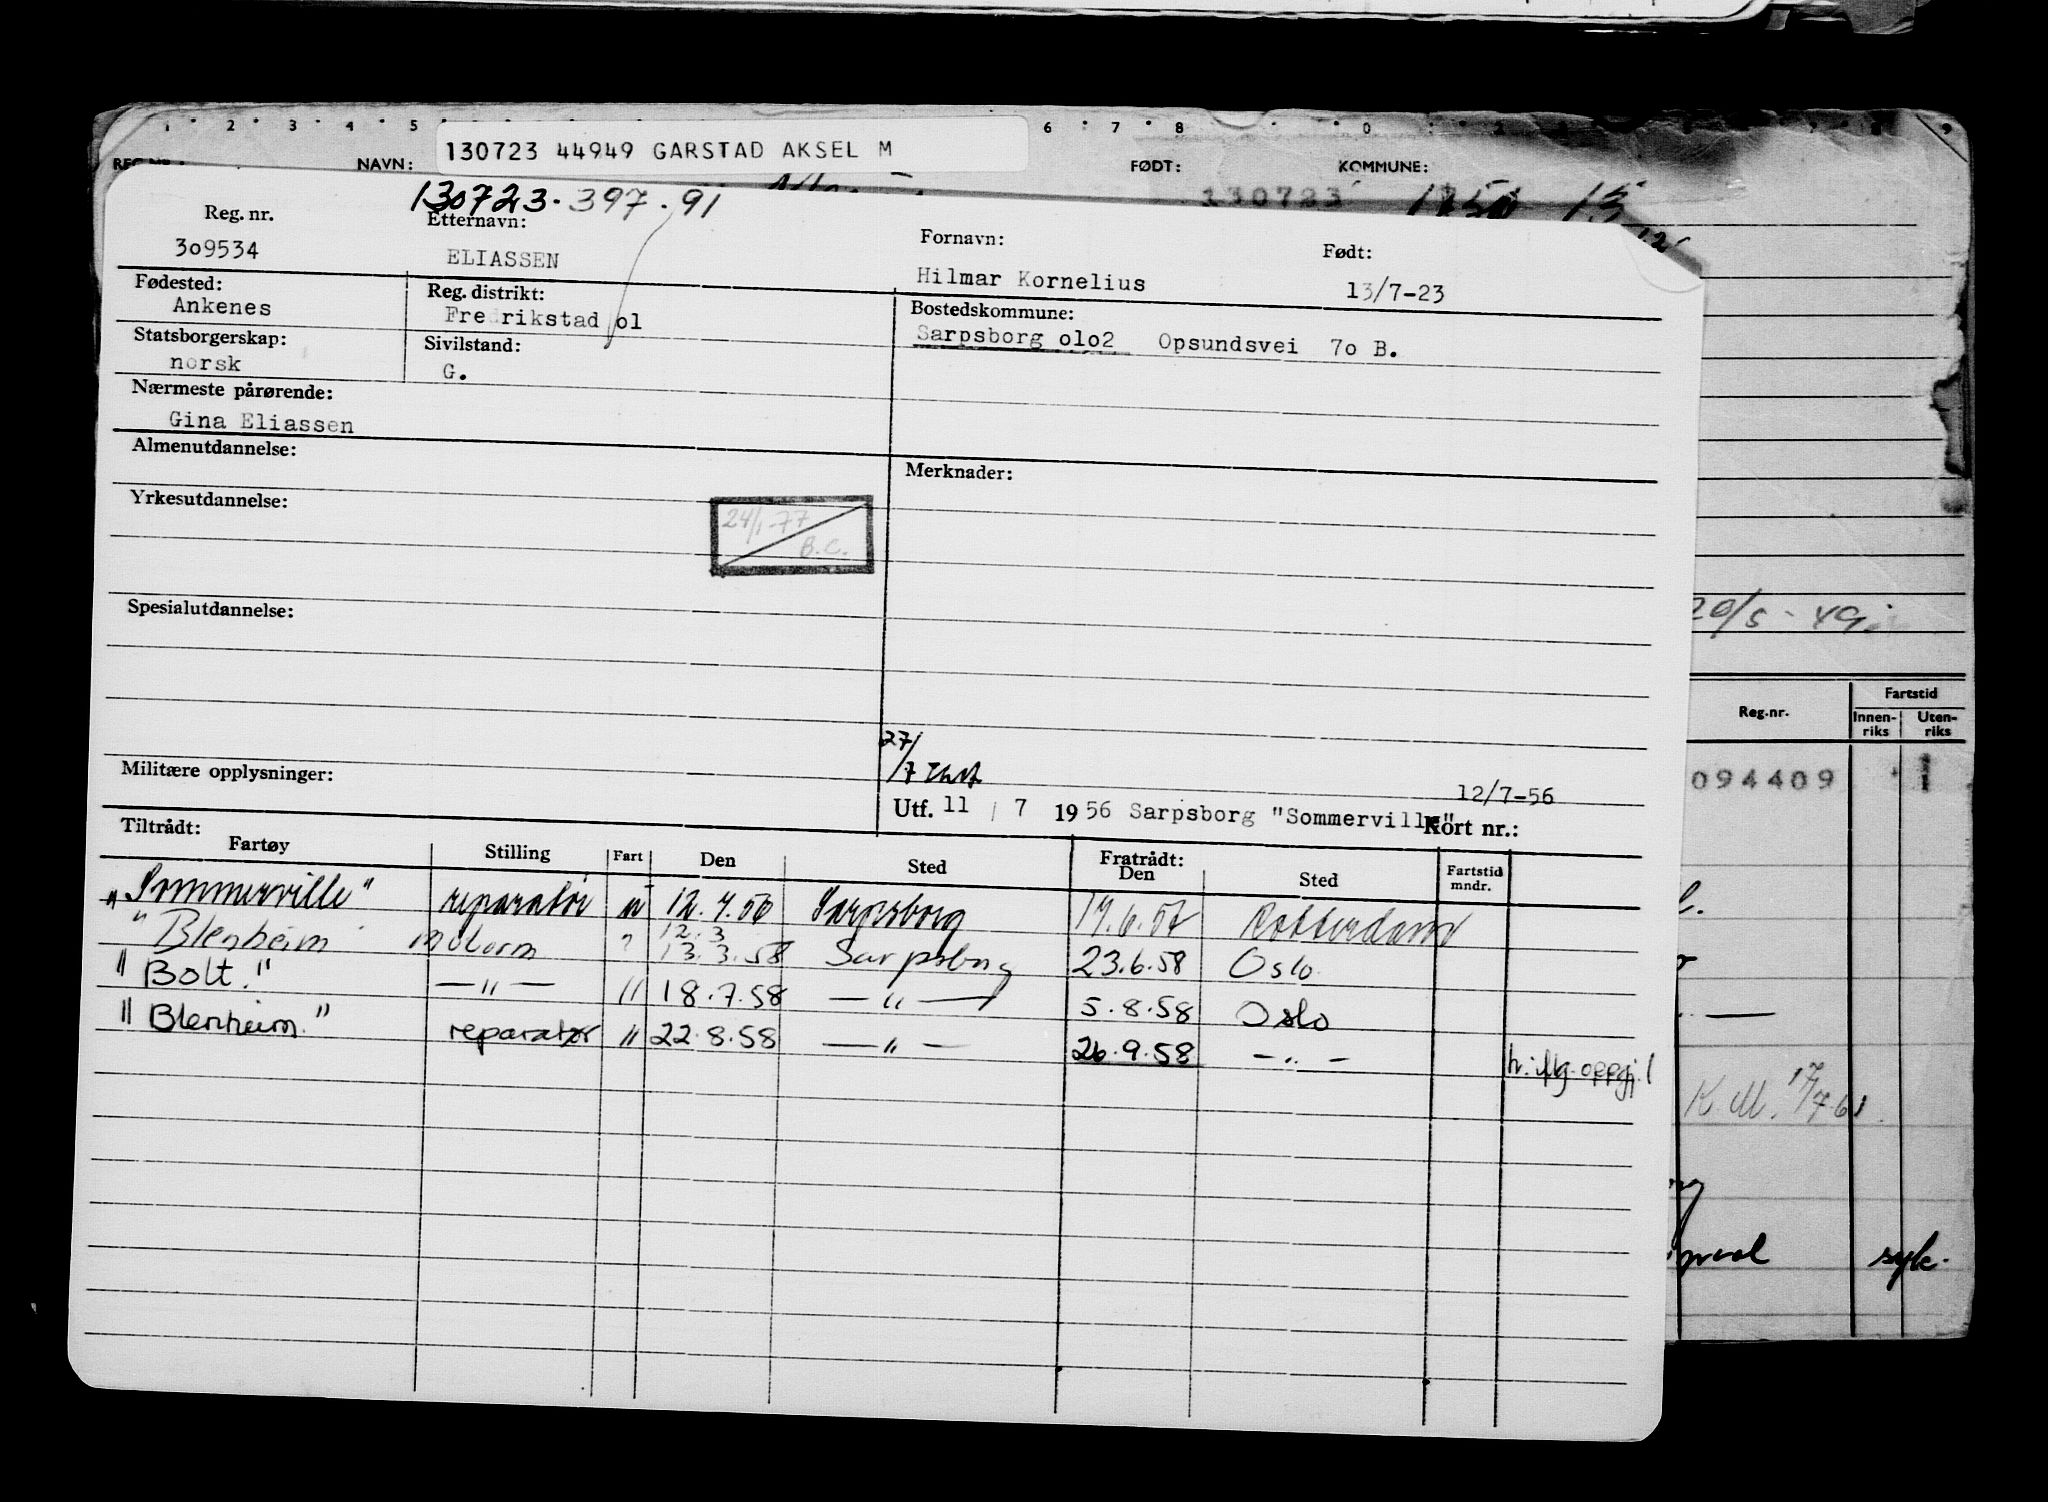 1 2 3 4 5 6 7 8 0
NAVN: 130723 44949 GARSTAD AKSEL M FØDT: KOMMUNE:
130723
130723.397.91
Reg. nr. Etternavn: Fornavn: Født:
3o9534 ELIASSEN Hilmar Kornelius 13/7-23
Fødested: Reg. distrikt: Bostedskommune:
Ankenes Fredrikstad o1 Sarpsborg o1o2 Opsundsvei 7o B.
Statsborgerskap: Sivilstand:
norsk G.
Nærmeste pårørende:
Gina Eliassen
Almenutdannelse: Merknader:
Yrkesutdannelse:
24/1-77
B.C.
Spesialutdannelse:
Militære opplysninger:
27/7
12/7-56
Utf. 11 / 7 1956 Sarpsborg "Sommerville" Kort nr.:
Tiltrådt: Fratrådt:
Fartøy Stilling Fart Den Sted Den Sted Fartstid mndr.
"Sommerville" reparatør u 12.7.56 Sarpsborg 17.6.57 Rotterdam
12.3
"Blenheim" motorm " 13.3.58 Sarpsborg 23.6.58 Oslo
"Bolt." — " — " 18.7.58 — " — 5.8.58 Oslo
"Blenheim." reparatør " 22.8.58 — " — 26.9.58 — " — h. iflg. oppgj.
Reg.nr. Fartstid
Innen-riks Uten-riks
094409 1
K M. 17/7-61
syk.